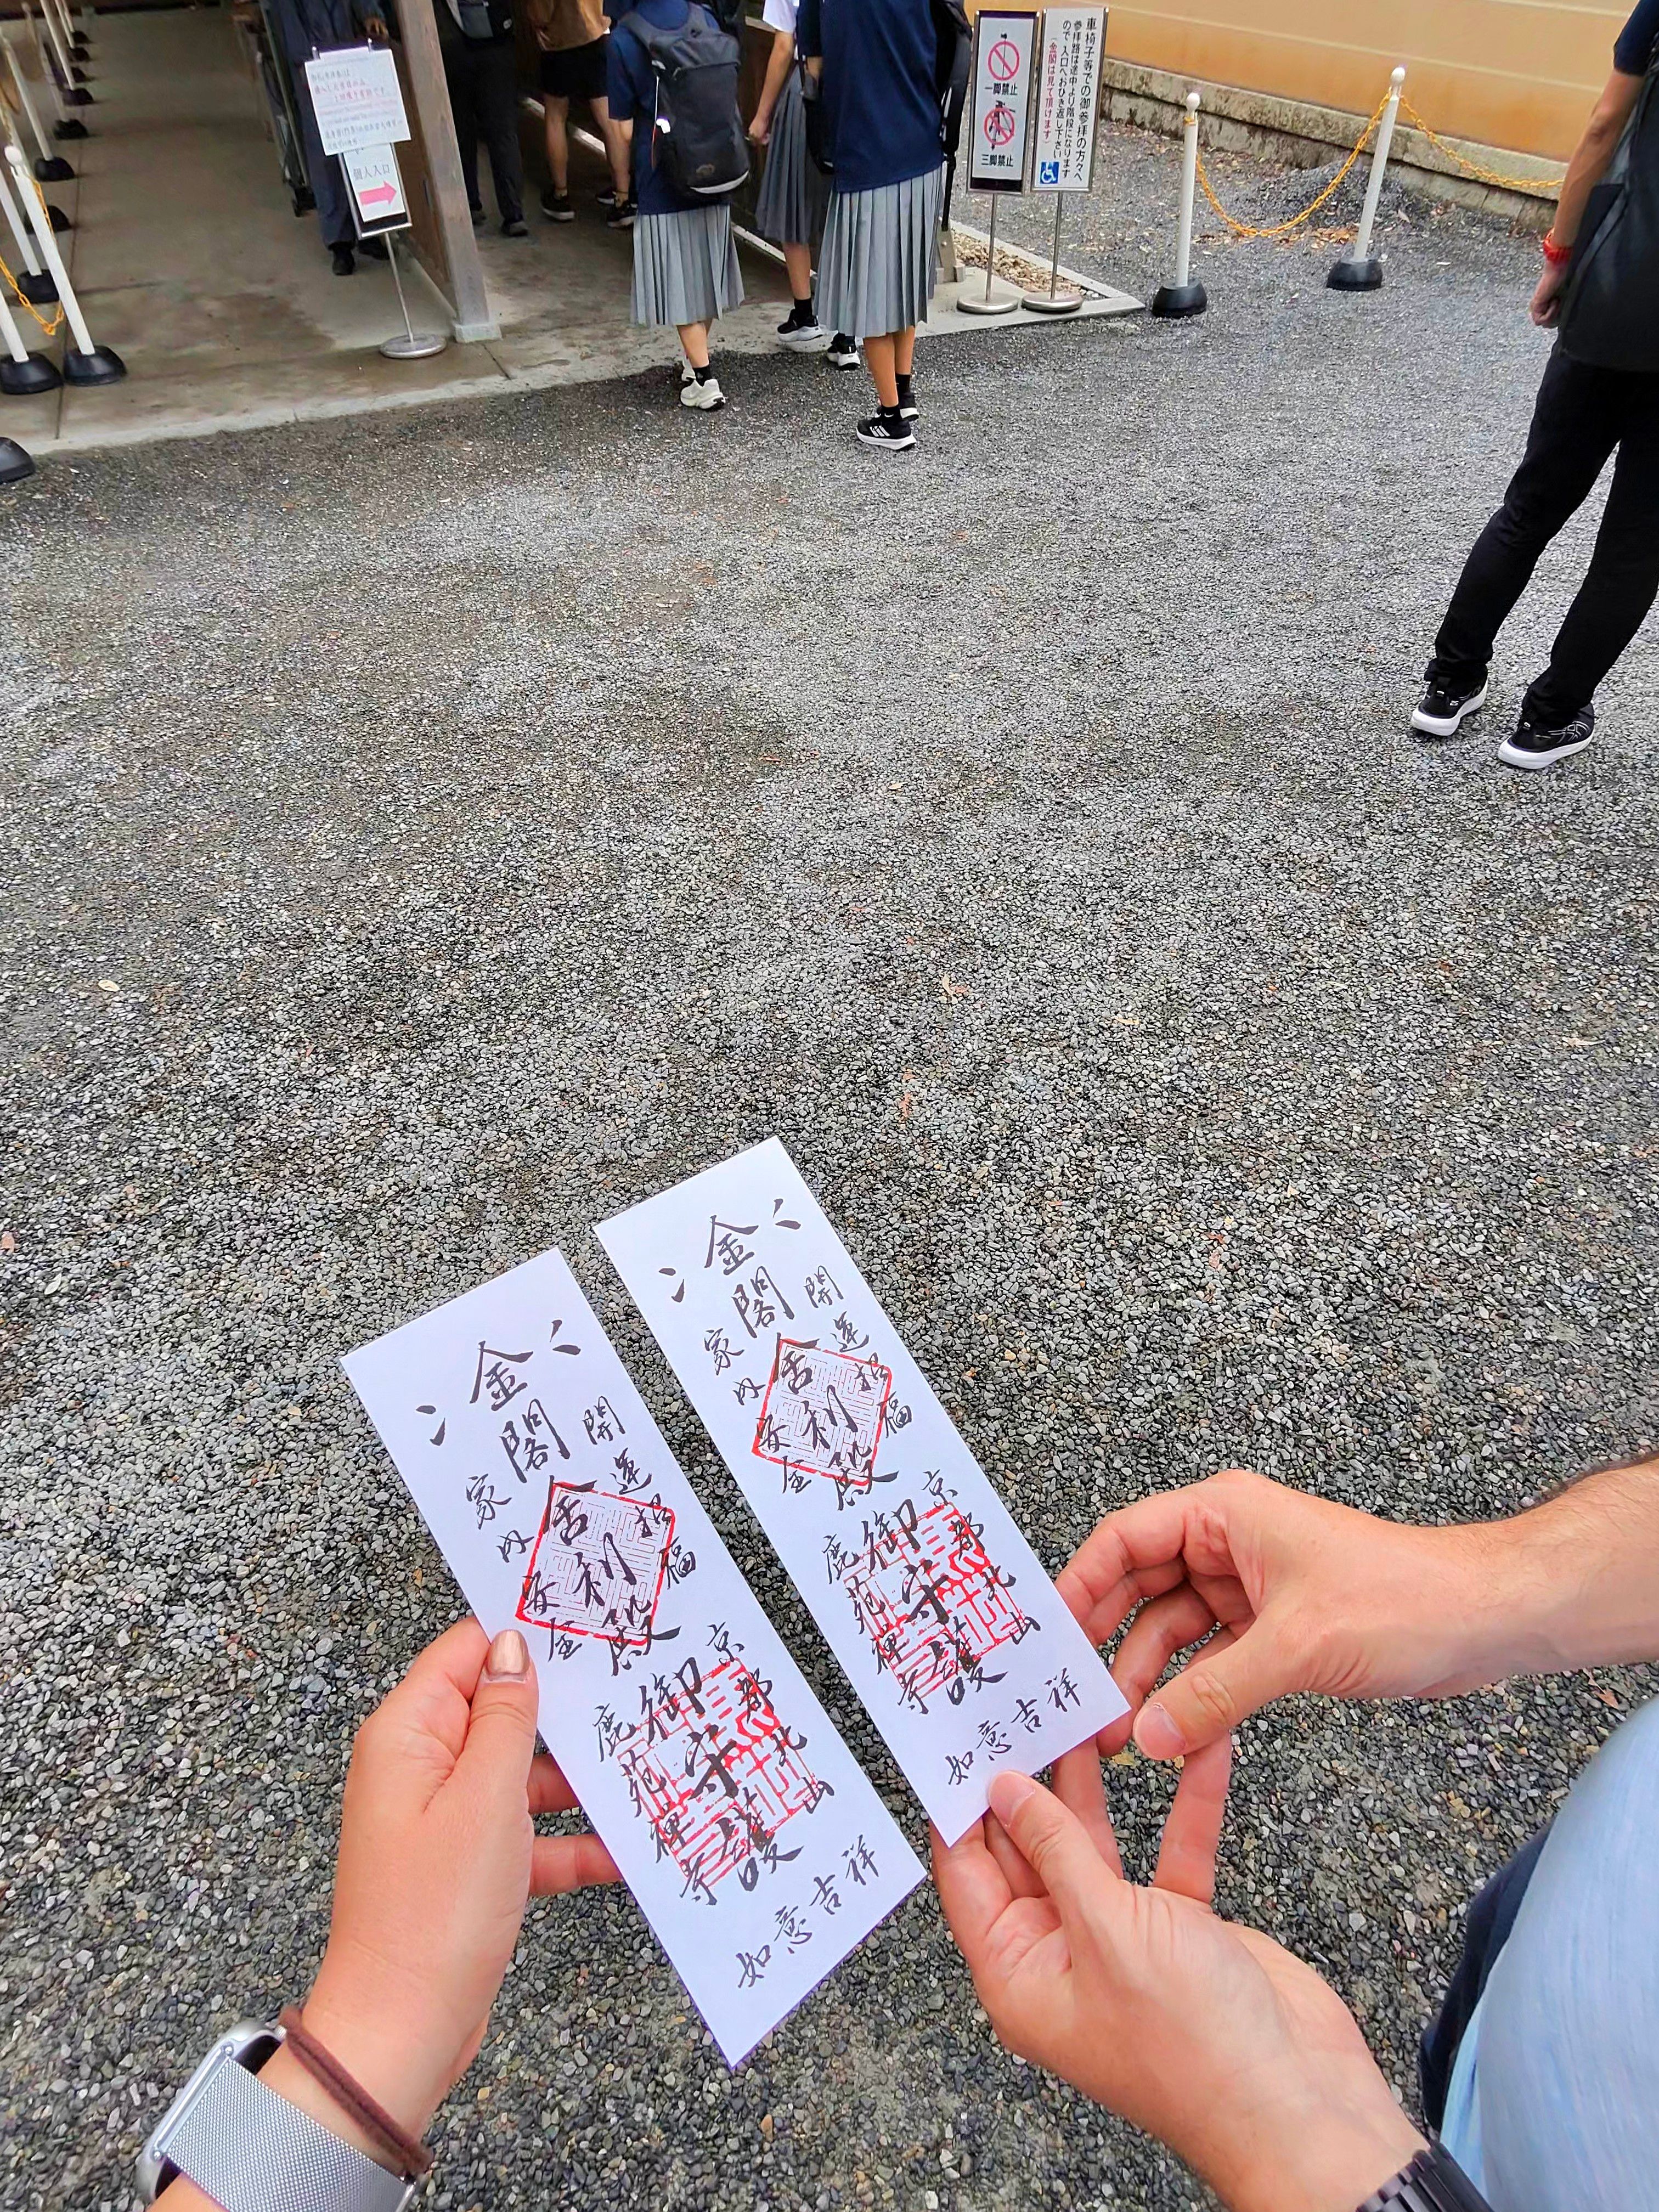 個人入口
一脚禁止
三脚禁止
車椅子等での御参拝の方々へ
参拝路は途中より階段になります
ので入口へおひき返し下さい
(金閣は見て頂けます)
金閣
舎利殿
御守護
開運招福
家内安全
京都北山
鹿苑禅寺
如意吉祥
金閣
舎利殿
御守護
開運招福
家内安全
京都北山
鹿苑禅寺
如意吉祥